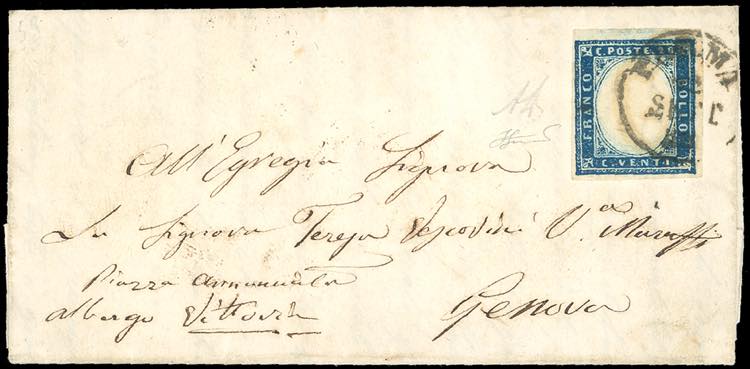 C. POSTE 20
FRANCO
BOLLO
C. VENTI
All'Egregia Signora
La Signora Teresa Vescovini V.a
Piazza Annunziata
albergo Vittoria
Genova